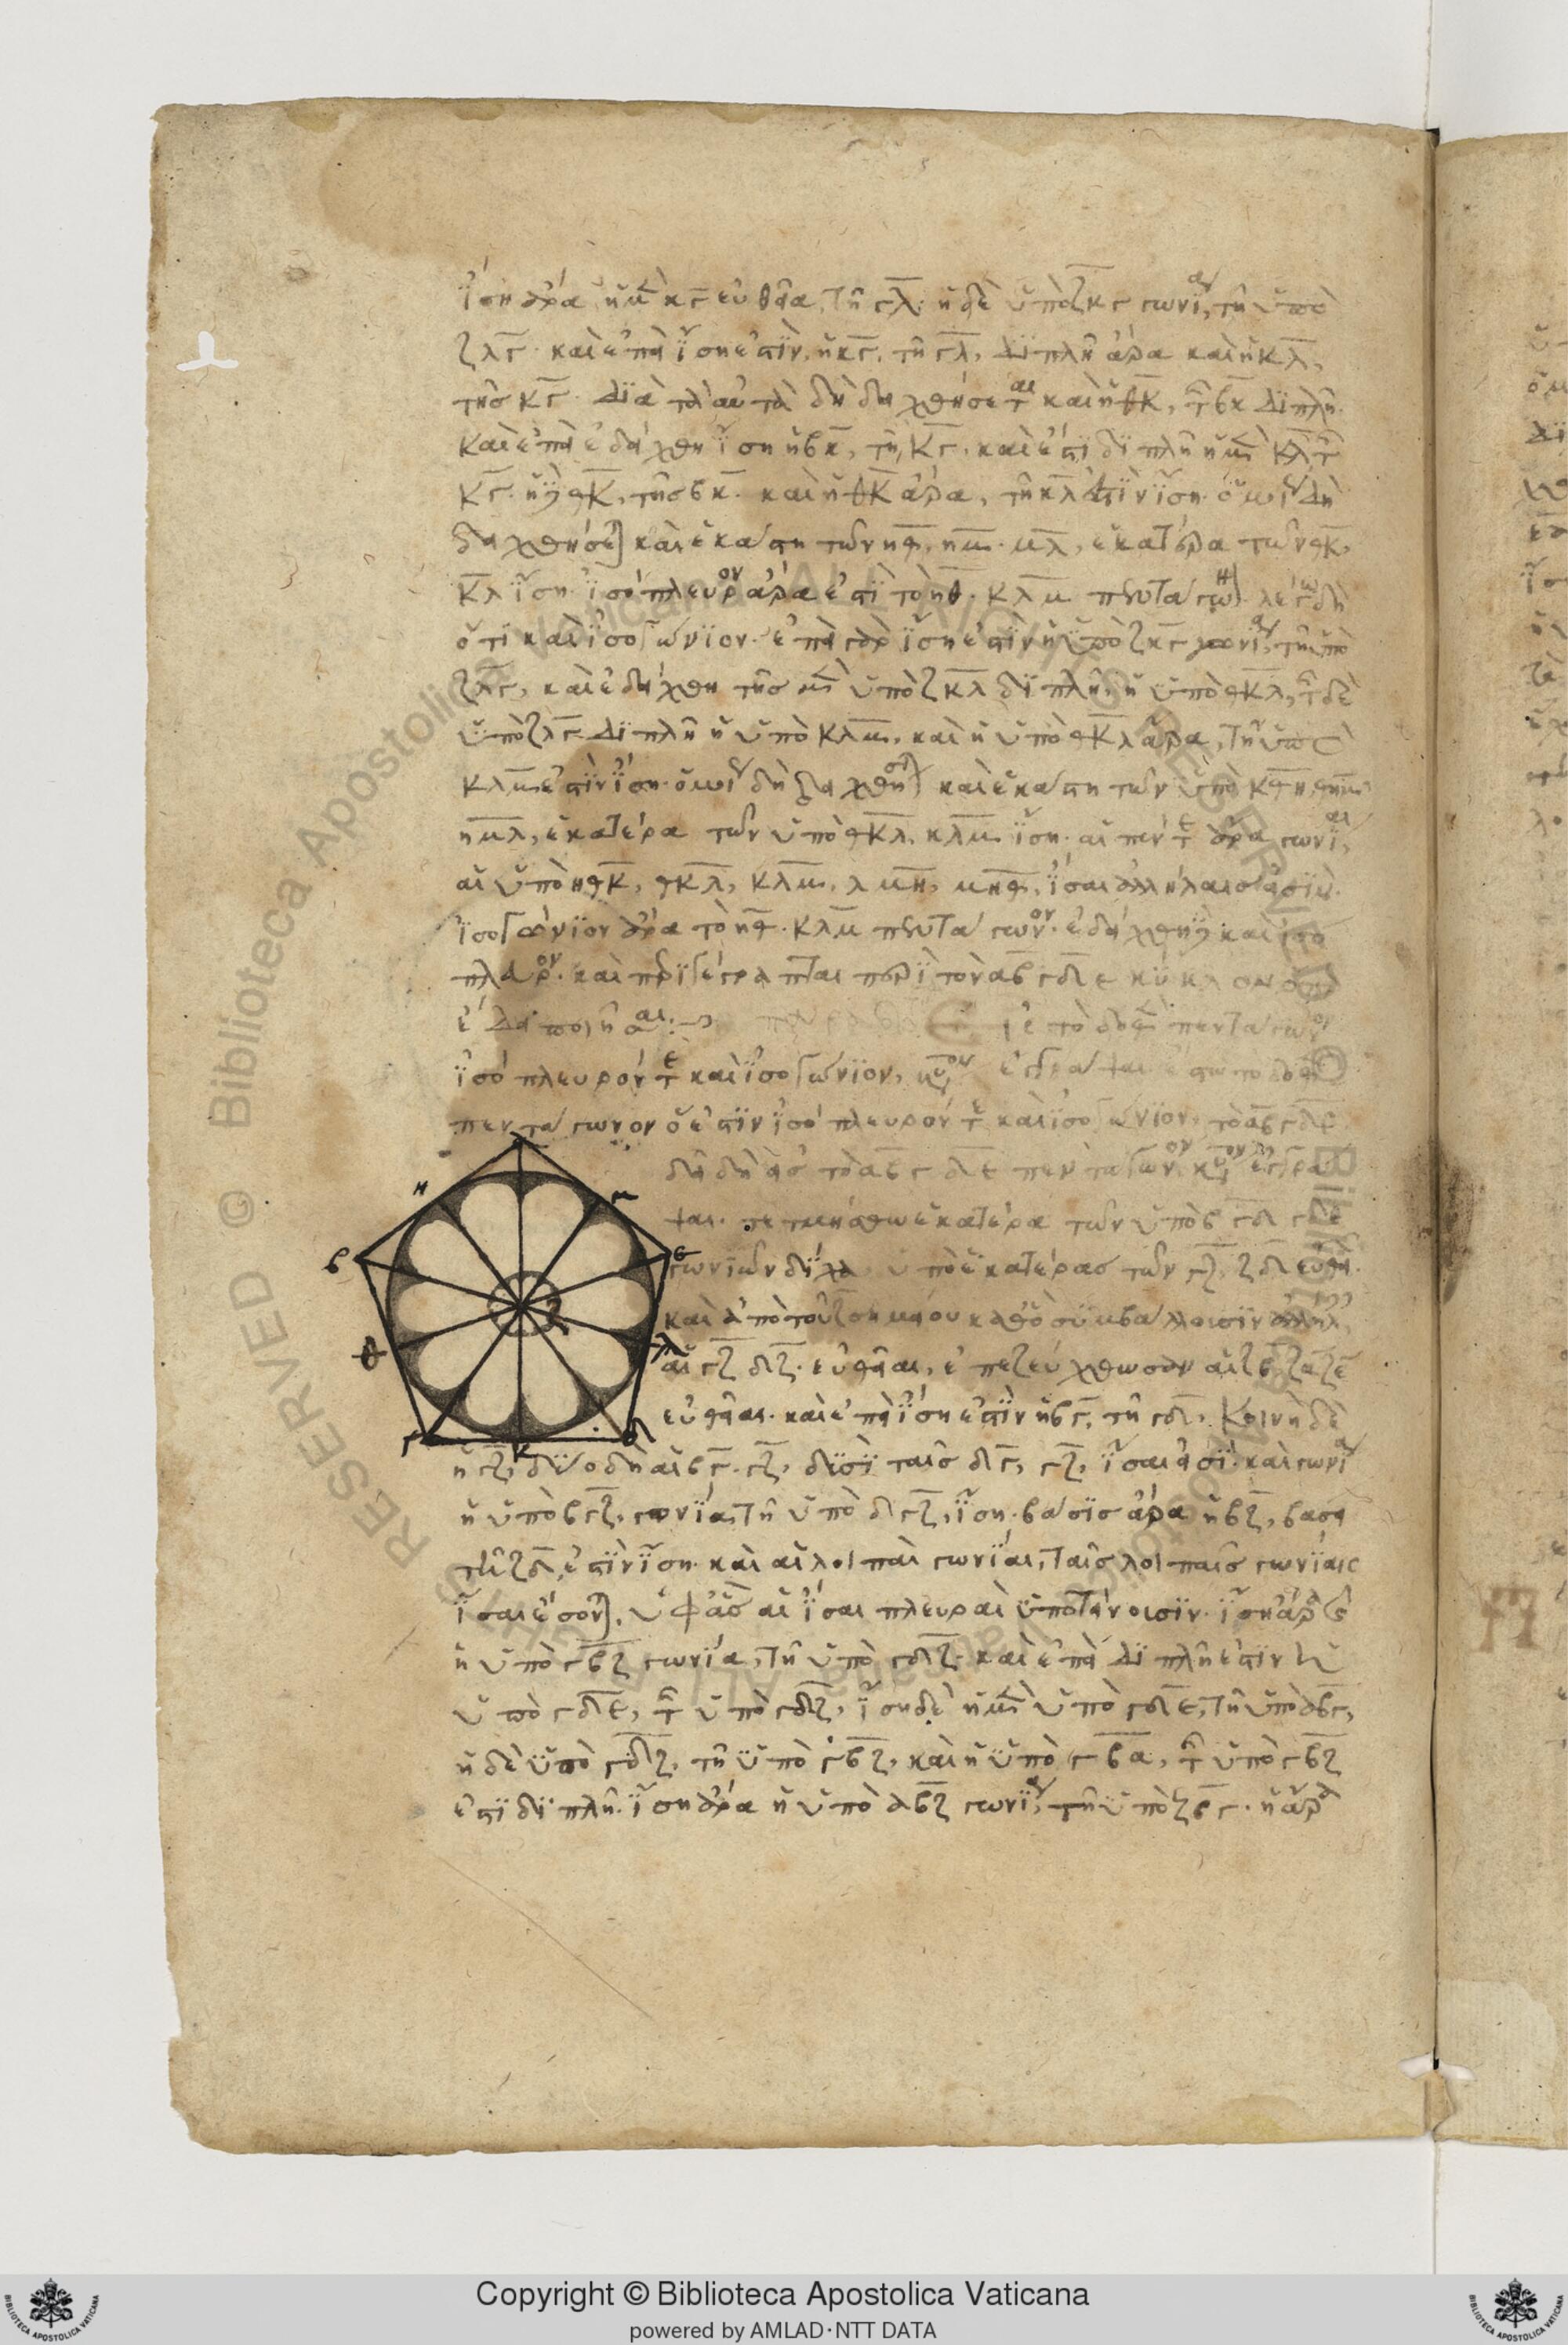 ἴση ἄρα ἡ μὲν κγ εὐθεῖα, τῆ γλ· ἡ δὲ ὑπὸ ζκγ γωνία, τῆ ὑπὸ
ζλγ· καὶ ἐπεὶ ἴση ἐστὶν, ἡ κγ, τῆ γλ, διπλῆ ἄρα καὶ ἡ κλ,
τῆς κγ. διὰ τὰ αὐτὰ δὴ δειχθήσεται καὶ ἡ θκ, τῆς βκ διπλῆ.
καὶ ἐπεὶ ἐδείχθη ἴση ἡ βκ, τῆ κγ. καὶ ἐστι διπλῆ ἡ μὲν κλ τῆς
κγ. ἡ δὲ θκ, τῆς βκ. καὶ ἡ θκ ἄρα, τῆ κλ ἐστὶν ἴση. ὁμοίως δὴ
δειχθήσεται καὶ ἑκάστη τῶν ηθ, ημ. μλ, ἑκατέρα τῶν θκ,
κλ ἴση. ἰσόπλευρον ἄρα ἐστὶ τὸ ηθ. κλμ πεντάγωνον. λέγω δὴ
ὅτι καὶ ἰσογώνιον. ἐπεὶ γὰρ ἴση ἐστὶν ἡ ὑπὸ ζκγ γωνία, τῆ ὑπὸ
ζλγ, καὶ ἐδείχθη τῆς μὲν ὑπὸ ζκλ διπλῆ, ἡ ὑπὸ θκλ, τῆς δὲ
ὑπὸ ζλγ διπλῆ ἡ ὑπὸ κλμ, καὶ ἡ ὑπὸ θκλ ἄρα, τῆ ὑπὸ
κλμ ἐστὶν ἴση. ὁμοίως δὴ δειχθήσεται καὶ ἑκάστη τῶν ὑπὸ κθη, θημ
ημλ, ἑκατέρα τῶν ὑπὸ θκλ, κλμ ἴση. αἱ πέντε ἄρα γωνίαι,
αἱ ὑπὸ ηθκ, θκλ, κλμ, λμη, μηθ, ἴσαι ἀλλήλαις εἰσὶν.
ἰσογώνιον ἄρα τὸ ηθ. κλμ πεντάγωνον. ἐδείχθη δὲ καὶ ἰσό
πλευρον. καὶ περιγέγραπται περὶ τὸν αβγδε κύκλον ὅπερ
ἔδει ποιῆσαι:
εἰς τὸ δοθὲν πεντάγωνον
ἰσόπλευρόν τε καὶ ἰσογώνιον, κύκλον ἐγγράψαι ἔστω τὸ δοθὲν
πεντάγωνον ὅ ἐστιν ἰσόπλευρόν τε καὶ ἰσογώνιον, τὸ αβγδε.
δεῖ δὴ εἰς τὸ αβγδε πεντάγωνον κύκλον ἐγγρά
ψαι. τετμήσθω ἑκατέρα τῶν ὑπὸ βγδ γδε
γωνιῶν δίχα ὑπὸ ἑκατέρας τῶν γζ, ζδ εὐθει.
καὶ ἀπὸ τοῦ ζ σημείου καθ' ὃ συμβάλλουσιν ἀλλήλ,
αἱ γζ δζ. εὐθεῖαι, ἐπεζεύχθωσαν αἱ ζβ ζα ζε
εὐθεῖαι. καὶ ἐπεὶ ἴση ἐστὶν ἡ βγ, τῆ γδ, κοινὴ δὲ
ἡ γζ, δύο δὴ αἱ βγ. γζ, δυσὶ ταῖς δγ, γζ, ἴσαι εἰσί. καὶ γωνία
ἡ ὑπὸ βγζ, γωνία, τῆ ὑπὸ δγζ, ἴση. βάσις ἄρα ἡ βζ, βάσει
τῆ ζδ, ἐστὶν ἴση. καὶ αἱ λοιπαὶ γωνίαι, ταῖς λοιπαῖς γωνίαις
ἴσαι ἔσονται, ὑφ' ἃς αἱ ἴσαι πλευραὶ ὑποτείνουσιν. ἴση ἄρα ἐστὶν
ἡ ὑπὸ γβζ γωνία, τῆ ὑπὸ γδζ. καὶ ἐπεὶ διπλῆ ἐστιν ἡ
ὑπὸ γδε, τῆς ὑπὸ γδζ, ἴση δὲ ἡ μὲν ὑπὸ γδε, τῆ ὑπὸ αβγ,
ἡ δὲ ὑπὸ γδζ, τῆ ὑπὸ γβζ, καὶ ἡ ὑπὸ γβα, τῆς ὑπὸ γβζ
ἐστὶ διπλῆ. ἴση ἄρα ἡ ὑπὸ αβζ γωνία, τῆ ὑπὸ ζβγ. ἡ ἄρα
η
μ
β
ε
ζ
θ
λ
γ
κ
δ
© Biblioteca Apostolica Vaticana ALL RIGHTS RESERVED
Copyright © Biblioteca Apostolica Vaticana
powered by AMLAD·NTT DATA
BIBLIOTECA APOSTOLICA VATICANA
BIBLIOTECA APOSTOLICA VATICANA